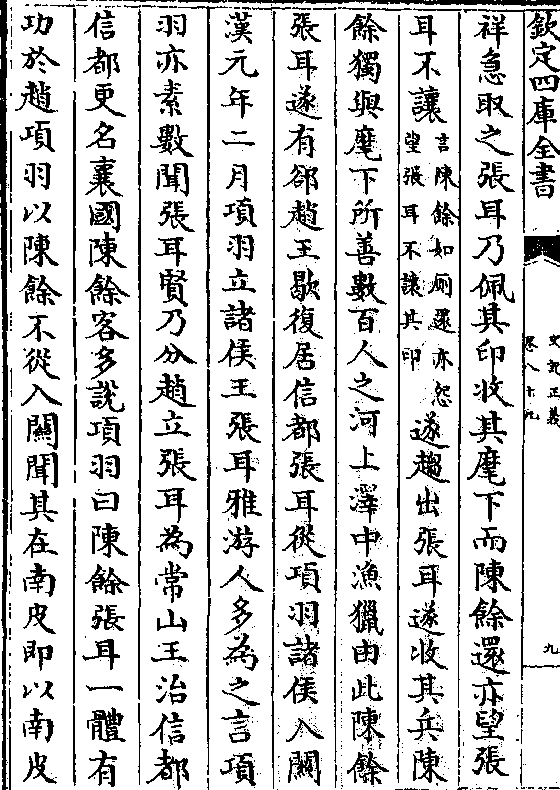 欽定四庫全書
史記正義
卷八十九
九
祥急取之張耳乃佩其印收其麾下而陳餘還亦望張
耳不讓
言陳餘如厠還亦怨
望張耳不讓其印
遂趨出張耳遂收其兵陳
餘獨與麾下所善數百人之河上澤中漁獵由此陳餘
張耳遂有郤趙王歇復居信都張耳從項羽諸侯入關
漢元年二月項羽立諸侯王張耳雅游人多為之言項
羽亦素數聞張耳賢乃分趙立張耳為常山王治信都
信都更名襄國陳餘客多說項羽曰陳餘張耳一體有
功於趙項羽以陳餘不從入關聞其在南皮即以南皮